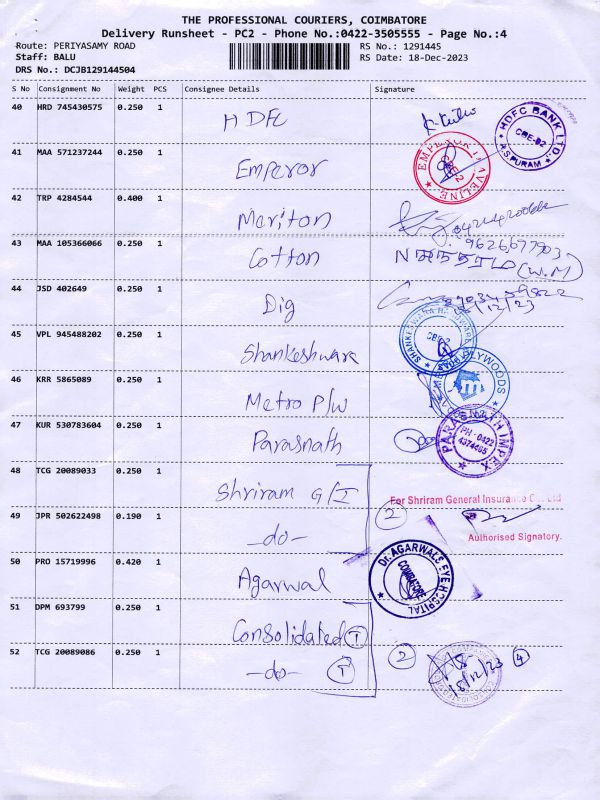 THE PROFESSIONAL COURIERS, COIMBATORE
Delivery Runsheet - PC2 - Phone No.:0422-3505555 - Page No.:4
Route: PERIYASAMY ROAD RS No.: 1291445
Staff: BALU RS Date: 18-Dec-2023
DRS No.: DCJB129144504
S No Consignment No Weight PCS Consignee Details Signature
40 HRD 745430575 0.250 1 HDFC
HDFC BANK LTD CBE-02 R S PURAM
41 MAA 571237244 0.250 1 Emperor
EMPEROR TRAVELINE
42 TRP 4284544 0.400 1 Meriton
43 MAA 105366066 0.250 1 Cotton 9626677903
(W.M)
44 JSD 402649 0.250 1 Dig
45 VPL 945488202 0.250 1 Shankeshwara
SHANKESHWARA HARDWARE CBE-2
46 KRR 5865089 0.250 1 Metro P/W
PLYWOODS
47 KUR 530783604 0.250 1 Parasnath
PARASNATH IMPEX PH-0422 4374465
48 TCG 20089033 0.250 1 Shriram G/I
For Shriram General Insurance Co. Ltd
49 JPR 502622498 0.190 1 -do- 2
Authorised Signatory.
50 PRO 15719996 0.420 1 Agarwal
Dr. AGARWALS EYE HOSPITAL COIMBATORE
51 DPM 693799 0.250 1 Consolidated 1
52 TCG 20089086 0.250 1 -do- 1 2 18/12/23 4